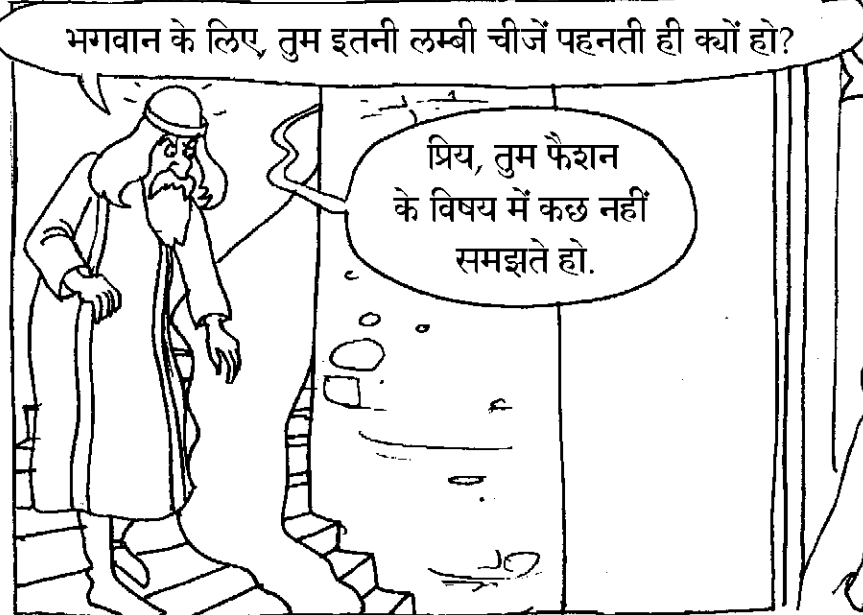 भगवान के लिए, तुम इतनी लम्बी चीजें पहनती ही क्यों हो?
प्रिय, तुम फैशन
के विषय में कछ नहीं
समझते हो.